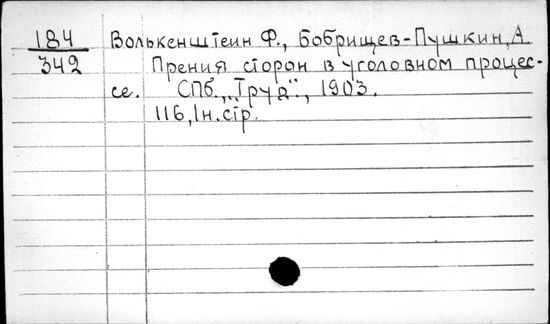 184 Волькенштеин Ф., Бобрищев-Пушкин, А.
342 Прения сторон в уголовном процес-
се. СПб., „Труд“, 1903.
116, 1н. стр.